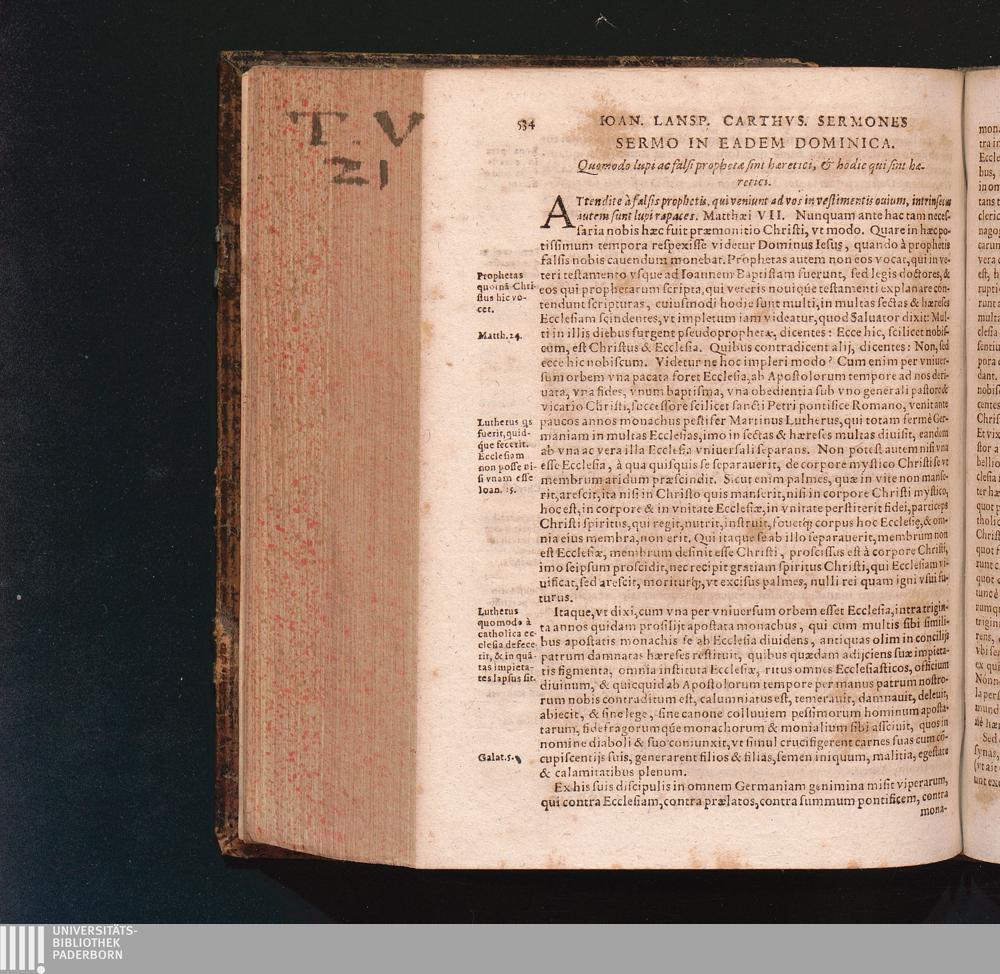 T. V
21
534
IOAN. LANSP. CARTHVS. SERMONES
SERMO IN EADEM DOMINICA.
Quomodo lupi ac falsi prophetæ sint hæretici, & hodie qui sint hæ-
retici.
ATtendite à falsis prophetis, qui veniunt ad vos in vestimentis ouium, intrinsecus
autem sunt lupi rapaces. Matthæi VII. Nunquam ante hac tam neces-
saria nobis hæc fuit præmonitio Christi, vt modo. Quare in hæc po-
tissimum tempora respexisse videtur Dominus Iesus, quando à prophetis
falsis nobis cauendum monebat. Prophetas autem non eos vocat, qui in ve-
teri testamento vsque ad Ioannem Baptistam fuerunt, sed legis doctores, &
eos qui prophetarum scripta, qui veteris nouique testamenti explanare con-
tendunt scripturas, cuiusmodi hodie sunt multi, in multas sectas & hæreses
Ecclesiam scindentes, vt impletum iam videatur, quod Saluator dixit: Mul-
ti in illis diebus surgent pseudoprophetæ, dicentes: Ecce hic, scilicet nobis-
cum, est Christus & Ecclesia. Quibus contradicent alij, dicentes: Non, sed
ecce hic nobiscum. Videtur ne hoc impleri modo? Cum enim per vniuer-
sum orbem vna pacata foret Ecclesia, ab Apostolorum tempore ad nos deri-
uata, vna fides, vnum baptisma, vna obedientia sub vno generali pastore &
vicario Christi, successore scilicet sancti Petri pontifice Romano, venit ante
paucos annos monachus pestifer Martinus Lutherus, qui totam fermè Ger-
maniam in multas Ecclesias, imo in sectas & hæreses multas diuisit, eandem
ab vna ac vera illa Ecclesia vniuersali separans. Non potest autem nisi vna
esse Ecclesia, à qua quisquis se separauerit, de corpore mystico Christi se vt
membrum aridum præscindit. Sicut enim palmes, quæ in vite non manse-
rit, arescit, ita nisi in Christo quis manserit, nisi in corpore Christi mystico,
hoc est, in corpore & in vnitate Ecclesiæ, in vnitate perstiterit fidei, particeps
Christi spiritus, qui regit, nutrit, instruit, fouetq́; corpus hoc Ecclesię, & om-
nia eius membra, non erit. Qui itaque se ab illo separauerit, membrum non
est Ecclesiæ, membrum desinit esse Christi, proscissus est à corpore Christi,
imo seipsum proscidit, nec recipit gratiam spiritus Christi, qui Ecclesiam vi-
uificat, sed arescit, moriturq́;, vt excisus palmes, nulli rei quam igni vsui fu-
turus.
Itaque, vt dixi, cum vna per vniuersum orbem esset Ecclesia, intra trigin-
ta annos quidam prosilijt apostata monachus, qui cum multis sibi simili-
bus apostatis monachis se ab Ecclesia diuidens, antiquas olim in concilijs
patrum damnatas hæreses restituit, quibus quædam adijciens suæ impieta-
tis figmenta, omnia instituta Ecclesiæ, ritus omnes Ecclesiasticos, officium
diuinum, & quicquid ab Apostolorum tempore per manus patrum nostro-
rum nobis contraditum est, calumniatus est, temerauit, damnauit, deleuit,
abiecit, & sine lege, sine canone colluuiem pessimorum hominum aposta-
tarum, fidefragorumque monachorum & monialium sibi asciuit, quos in
nomine diaboli & suo coniunxit, vt simul crucifigerent carnes suas cum cō-
cupiscentijs suis, generarent filios & filias, semen iniquum, malitia, egestate
& calamitatibus plenum.
Ex his suis discipulis in omnem Germaniam genimina misit viperarum,
qui contra Ecclesiam, contra prælatos, contra summum pontificem, contra
mona-
Prophetas
quoinā Chri-
stus hic vo-
cet.
Matth. 24.
Lutherus qs
fuerit, quid-
que fecerit.
Ecclesiam
non posse ni-
si vnam esse
Ioan. 15.
Lutherus
quomodo à
catholica ec-
clesia defece
rit, & in quā-
tas impieta-
tes lapsus sit.
Galat. 5.
UNIVERSITÄTS-
BIBLIOTHEK
PADERBORN